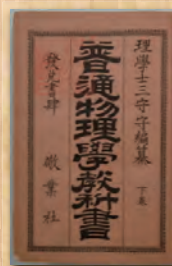 理學士三守守編纂
下卷
普通物理學教科書
發兌書肆
敬業社